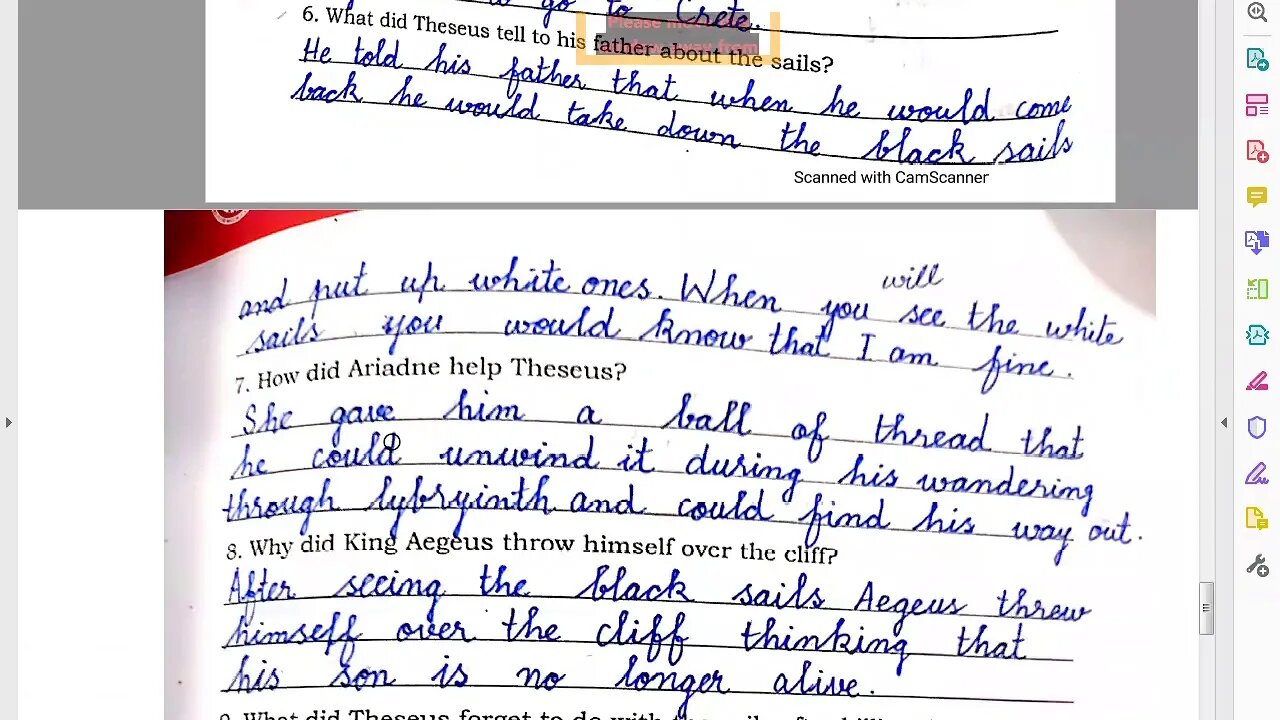 go to Crete.
6. What did Theseus tell to his father about the sails?
He told his father that when he would come
back he would take down the black sails
Scanned with CamScanner
and put up white ones. When you will see the white
sails you would know that I am fine.
7. How did Ariadne help Theseus?
She gave him a ball of thread that
he could unwind it during his wandering
through lybryinth and could find his way out.
8. Why did King Aegeus throw himself over the cliff?
After seeing the black sails Aegeus threw
himself over the cliff thinking that
his son is no longer alive.
9. What did Theseus forget to do with